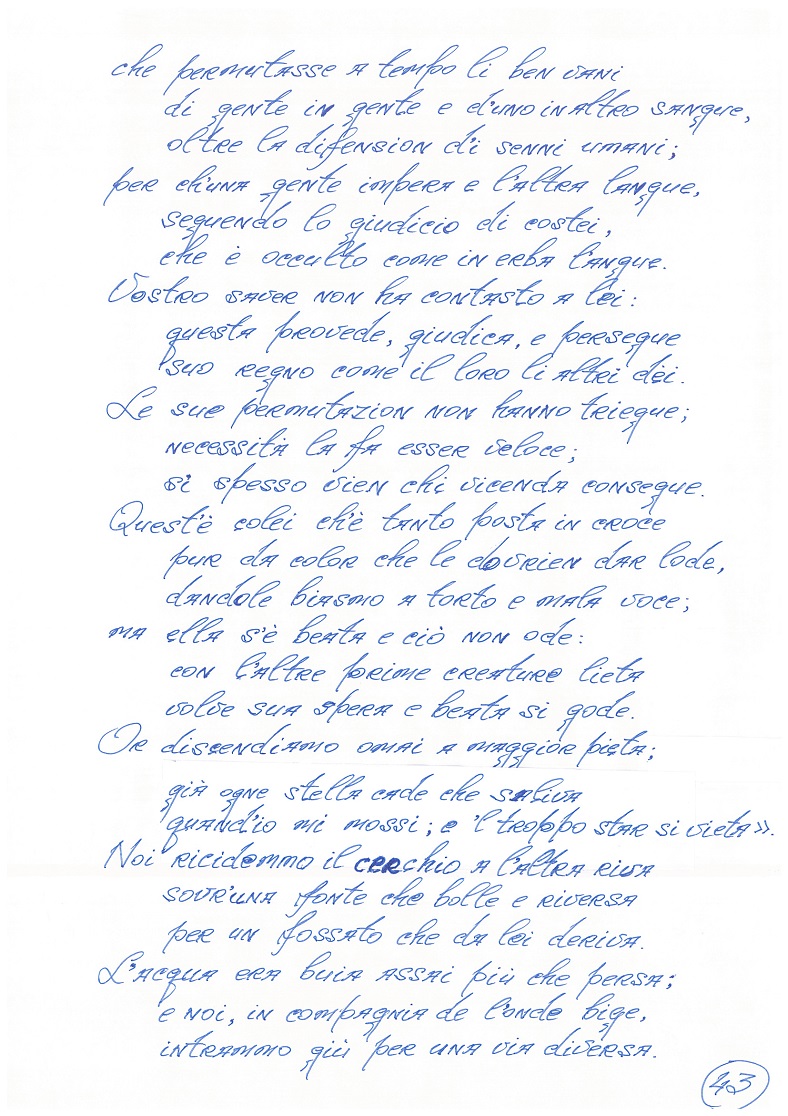 che permutasse a tempo li ben vani
di gente in gente e d'uno in altro sangue,
oltre la difension d'i senni umani;
per ch'una gente impera e l'altra langue,
seguendo lo giudicio di costei,
che è occulto come in erba l'angue.
Vostro saver non ha contasto a lei:
questa provede, giudica, e persegue
suo regno come il loro li altri dèi.
Le sue permutazion non hanno triegue;
necessità la fa esser veloce;
sì spesso vien chi vicenda consegue.
Quest'è colei ch'è tanto posta in croce
pur da color che le dovrien dar lode,
dandole biasmo a torto e mala voce;
ma ella s'è beata e ciò non ode:
con l'altre prime creature lieta
volve sua spera e beata si gode.
Or discendiamo omai a maggior pieta;
già ogne stella cade che saliva
quand'io mi mossi; e 'l troppo star si vieta».
Noi ricidemmo il cerchio a l'altra riva
sovr'una fonte che bolle e riversa
per un fossato che da lei deriva.
L'acqua era buia assai più che persa;
e noi, in compagnia de l'onde bige,
intrammo giù per una via diversa.
43